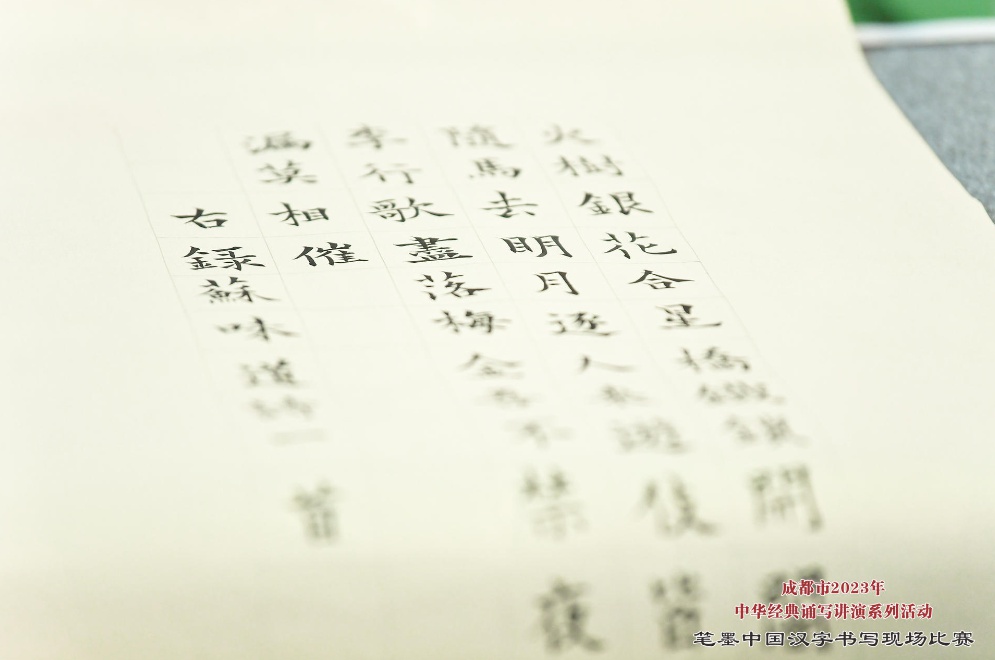 火樹銀花合星橋鐵鎖開
隨馬去明月逐人來遊伎皆
李行歌盡落梅金吾不禁夜
漏莫相催
右錄蘇味道詩一首
成都市2023年
中华经典诵写讲演系列活动
笔墨中国汉字书写现场比赛